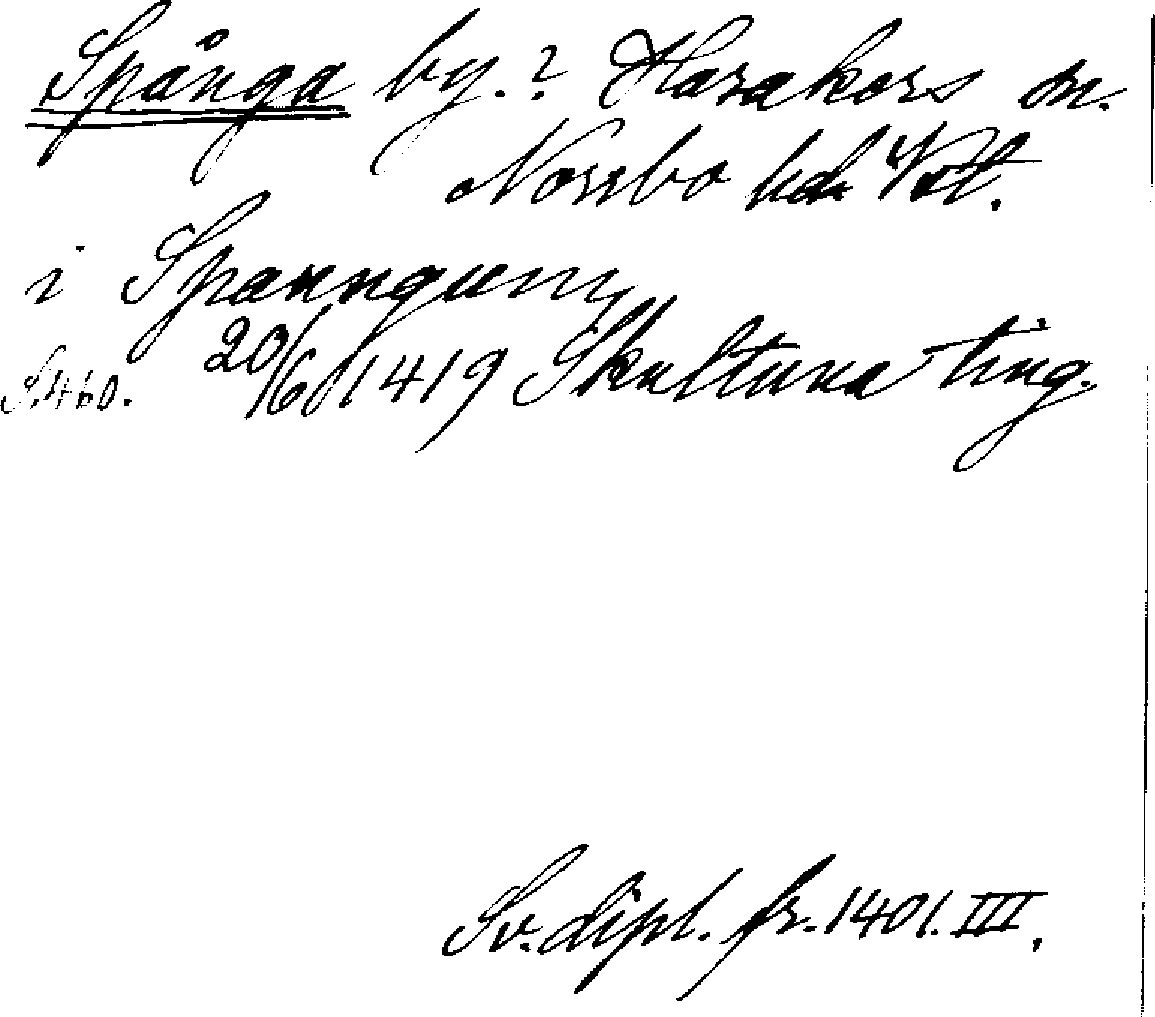 Spånga by.? Harakers sn.
Norrbo hd Vstl.
i Spanngum,
S. 460. 20/6 1419 Skultuna ting.
Sv. dipl. fr. 1401. III.